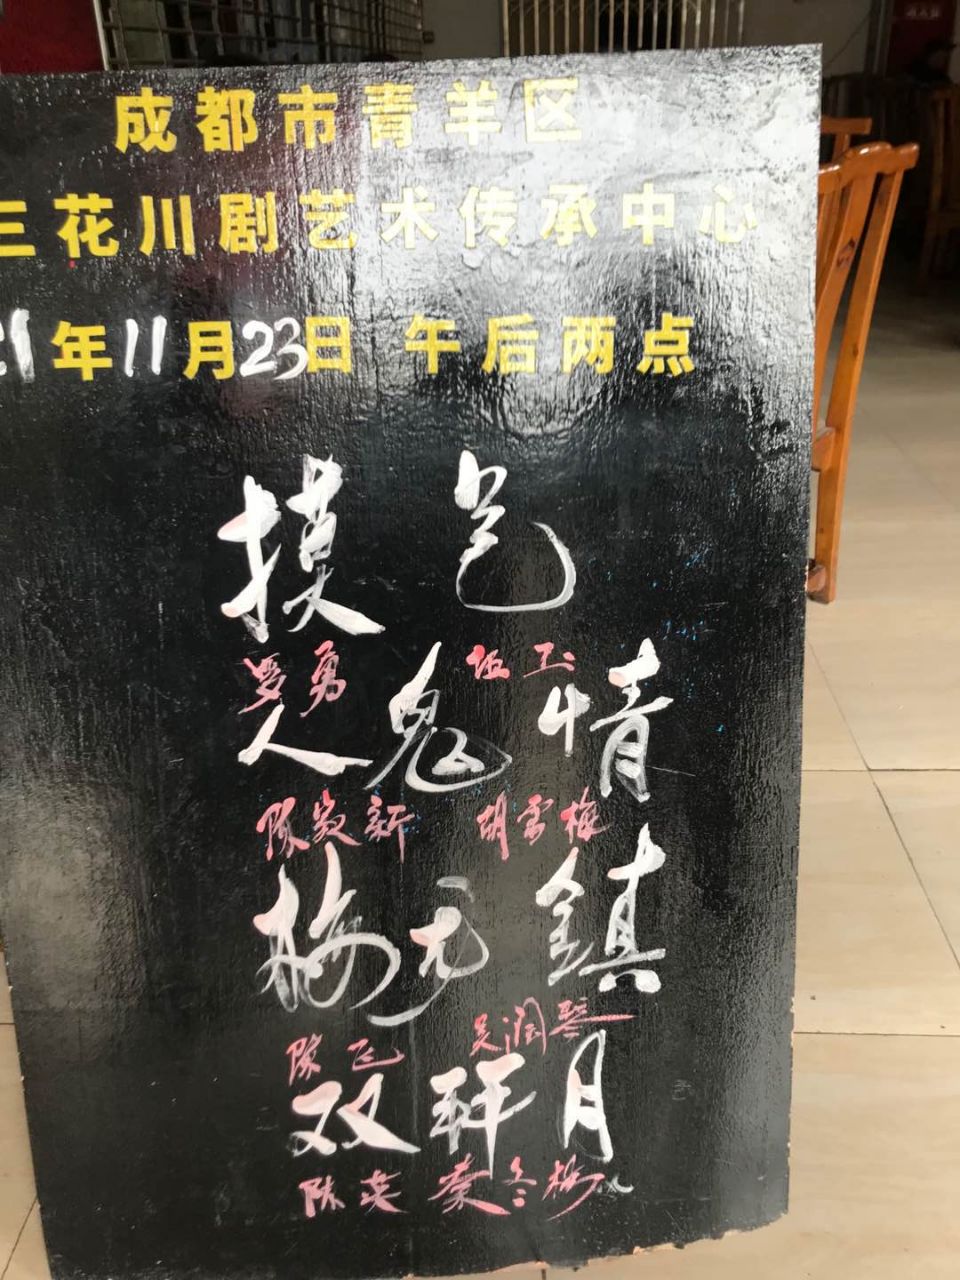 成都市青羊区
三花川剧艺术传承中心
21年11月23日 午后两点
摸包
罗勇
人鬼情
陈家新 胡雪梅
梅龙镇
陈飞 吴润琴
双拜月
陈英 秦冬梅